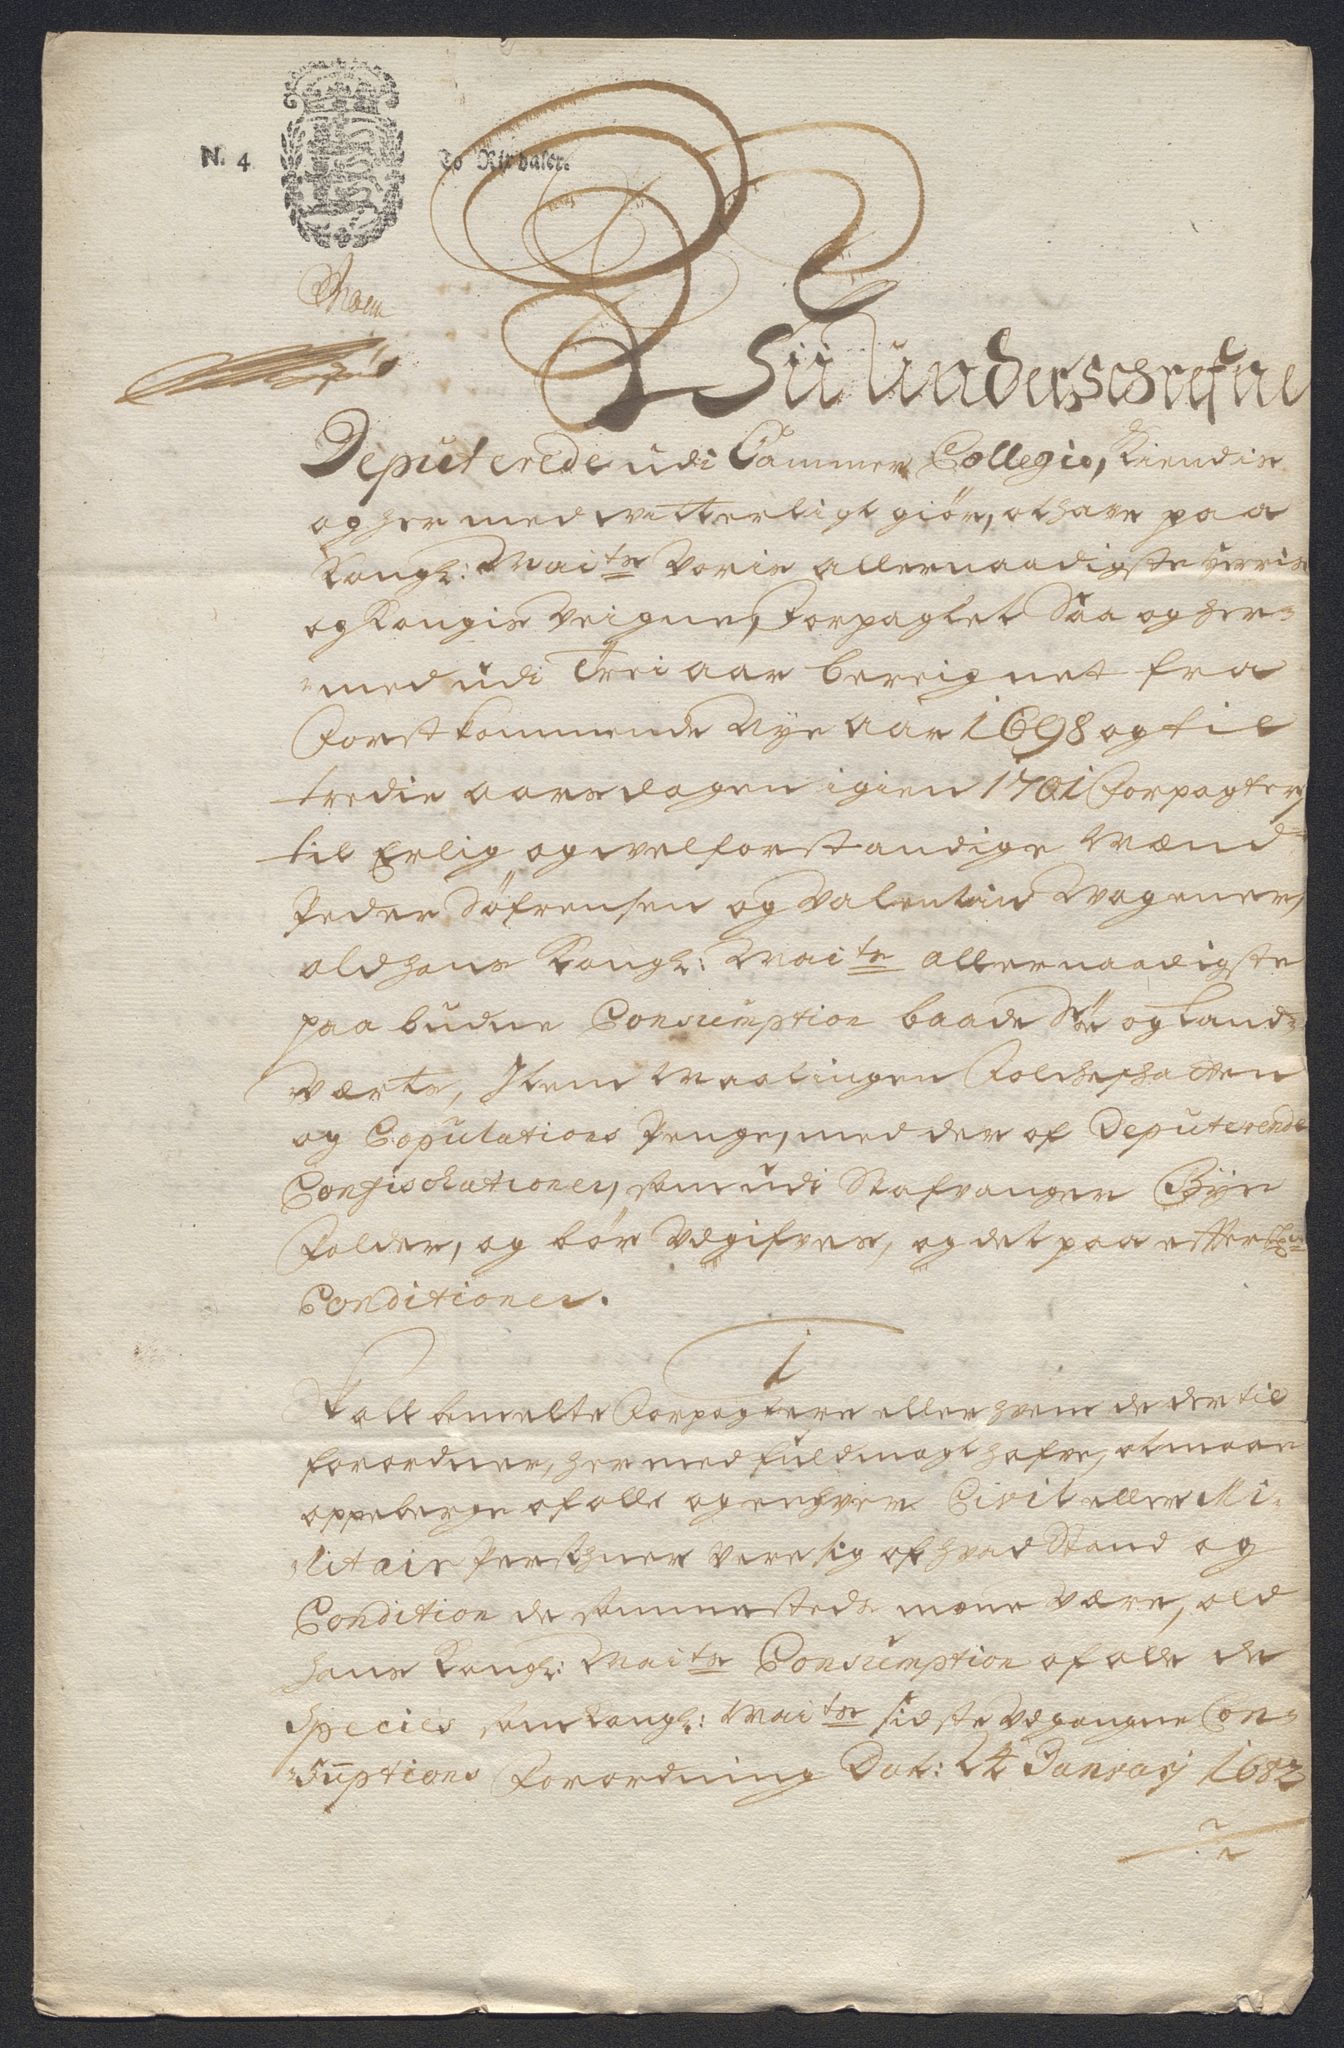 N. 4. To Rixdaler.
Wii Underschrefne
Deputerede udi Cammer Collegio, Kiendis
og her med witterligt giör, at have paa
Kongl: Maits Voris allernaadigste Herris
og Kongis Veigne, Forpagtet Saa og her-
med udi Trei aar bereignet fra
Førstkommende Nye Aar 1698 og til
tredie aarsdagen igien 1701 Forpagter
til Erlig og velforstandige Mænd
Peder Söfrensen og Valentin Wagener,
ald hans Kongl: Maits allernaadigste
paabudne Consumption baade Söe og Land-
værts, Item Maalingen Folcheschatten
og Copulations Penge, med der af Deputerende
Confischationer, som udi Stafvanger Bÿe
Falder, og bör Udgifves, og det paa efter
Conditioner.
1
Skall bemelte Forpagtere eller hvem de der til
forordner, her med fuldmagt hafve, at maae
oppeberge af alle og enhver Civil eller Mi-
litair Persohner være sig af hvad Stand og
Condition de sammesteds maae være, ald
hans Kongl: Maits Consumption af alle de
Species som Kongl: Maits sidste Udgangne Con-
suptions Forordning Dat: 24 Januarj 1682